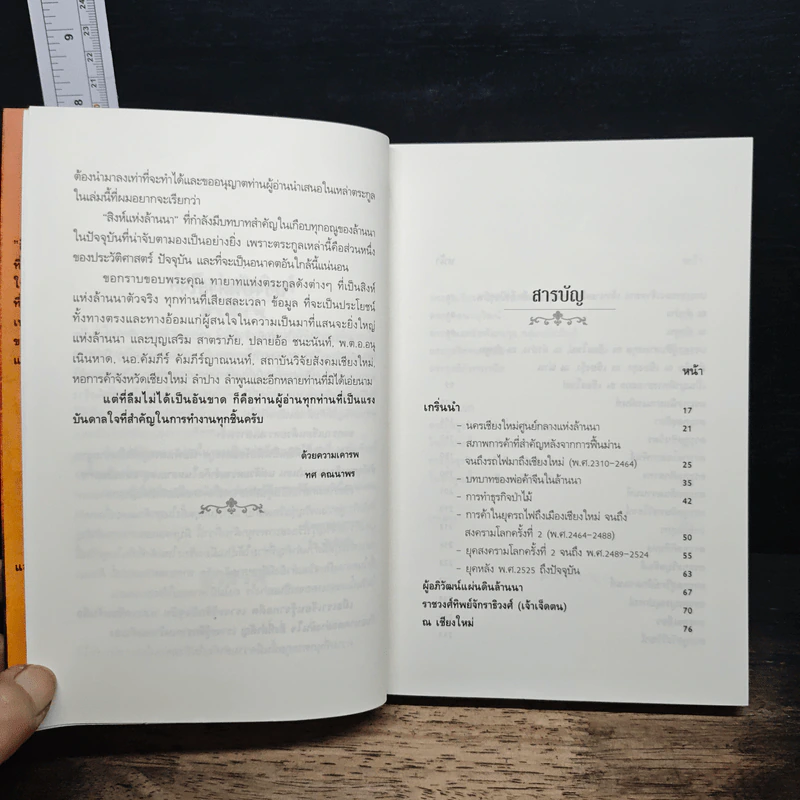 ต้องนำมาลงเท่าที่จะทำได้และขออนุญาตท่านผู้อ่านนำเสนอในเหล่าตระกูล
ในเล่มนี้ที่ผมอยากจะเรียกว่า
"สิงห์แห่งล้านนา" ที่กำลังมีบทบาทสำคัญในเกือบทุกอณูของล้านนา
ในปัจจุบันที่น่าจับตามองเป็นอย่างยิ่ง เพราะตระกูลเหล่านี้คือส่วนหนึ่ง
ของประวัติศาสตร์ ปัจจุบัน และที่จะเป็นอนาคตอันใกล้นี้แน่นอน
ขอกราบขอบพระคุณ ทายาทแห่งตระกูลดังต่างๆ ที่เป็นสิงห์
แห่งล้านนาตัวจริง ทุกท่านที่เสียสละเวลา ข้อมูล ที่จะเป็นประโยชน์
ทั้งทางตรงและทางอ้อมแก่ผู้สนใจในความเป็นมาที่แสนจะยิ่งใหญ่
แห่งล้านนา และบุญเสริม สาตราภัย, ปลายอ้อ ชนะนันท์, พ.ต.อ.อนุ
เนินหาด, นอ.คัมภีร์ คัมภีร์ญาณนนท์, สถาบันวิจัยสังคมเชียงใหม่,
หอการค้าจังหวัดเชียงใหม่ ลำปาง ลำพูนและอีกหลายท่านที่มิได้เอ่ยนาม
แต่ที่ลืมไม่ได้เป็นอันขาด ก็คือท่านผู้อ่านทุกท่านที่เป็นแรง
บันดาลใจที่สำคัญในการทำงานทุกชิ้นครับ
ด้วยความเคารพ
ทศ คณนาพร
สารบัญ
หน้า
เกริ่นนำ 17
- นครเชียงใหม่ศูนย์กลางแห่งล้านนา 21
- สภาพการค้าที่สำคัญหลังจากการฟื้นม่าน
จนถึงรถไฟมาถึงเชียงใหม่ (พ.ศ.2310-2464) 25
- บทบาทของพ่อค้าจีนในล้านนา 35
- การทำธุรกิจป่าไม้ 42
- การค้าในยุครถไฟถึงเมืองเชียงใหม่ จนถึง
สงครามโลกครั้งที่ 2 (พ.ศ.2464-2488) 50
- ยุคสงครามโลกครั้งที่ 2 จนถึง พ.ศ.2489-2524 55
- ยุคหลัง พ.ศ.2525 ถึงปัจจุบัน 63
ผู้อภิวัฒน์แผ่นดินล้านนา 67
ราชวงศ์ทิพย์จักราธิวงศ์ (เจ้าเจ็ดตน) 70
ณ เชียงใหม่ 76
9
8
24
23
22
21